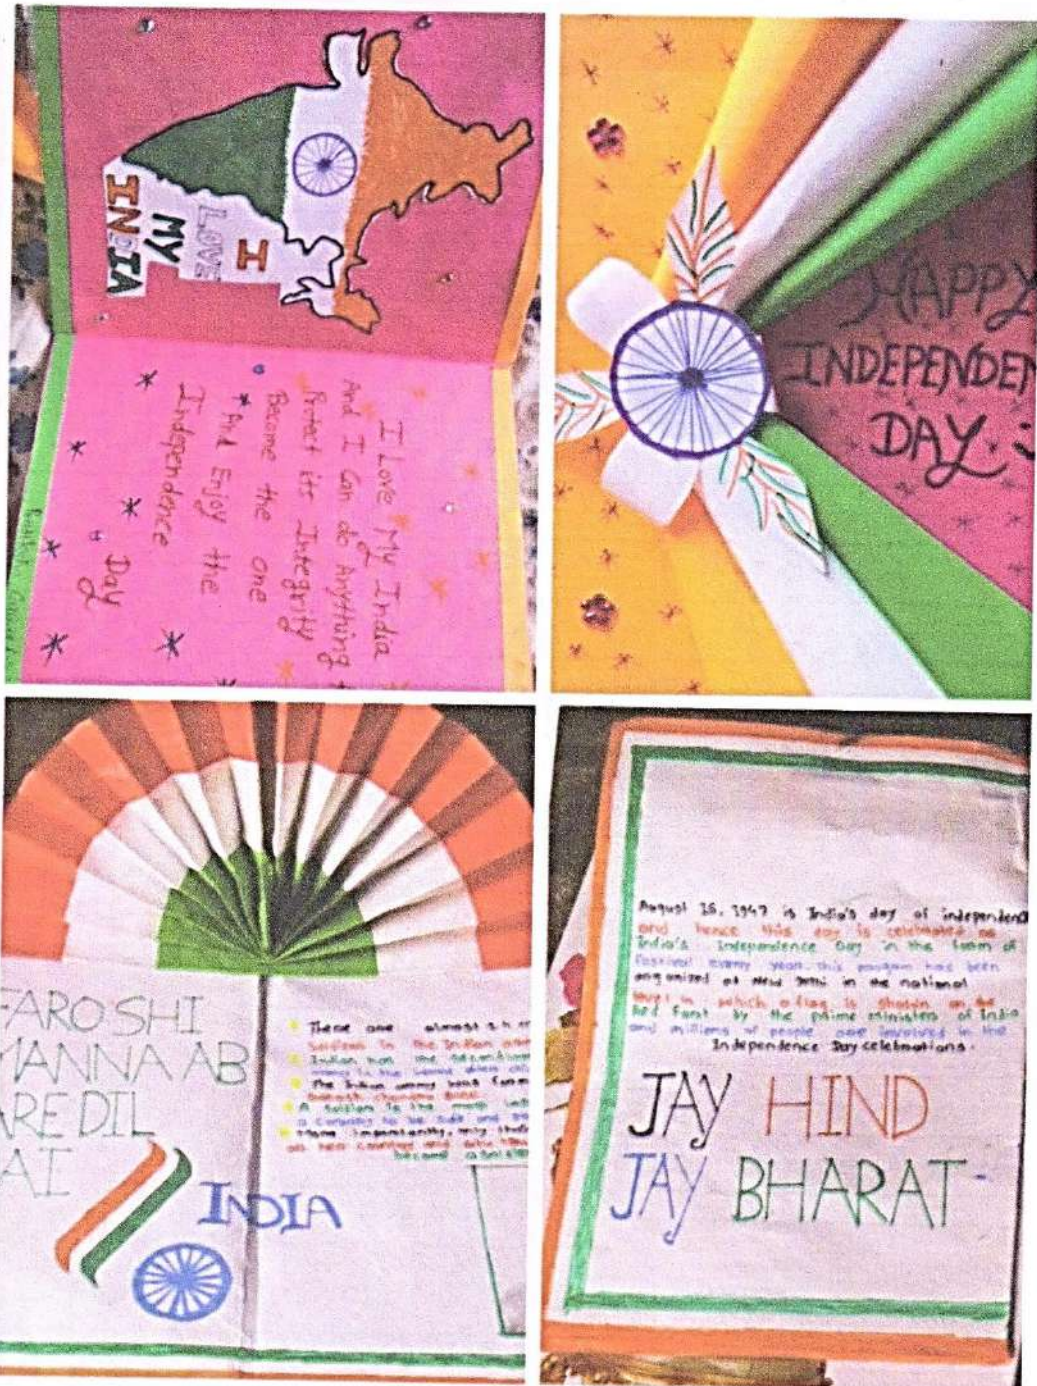 I
LOVE
MY
INDIA
I Love My India
And I Can do Anything t
Protect its Integrity
Become the one
And Enjoy the
Independence
Day
HAPPY
INDEPENDEN
DAY
FAROSHI
MANNA AB
ARE DIL
AI
INDIA
There are almost
soldiers in the Indian
Indian
The Indian army was
A soldier is the most
a country to be safe and
More importantly, only
August 15, 1947 is India's day of independenc
and hence this day is celebrated as
India's Independence Day in the form of
festival every year. this program has been
organized at New Delhi in the national
level in which a flag is on the
Red Fort by the prime ministers of India
and millions of people are involved in the
Independence Day celebrations.
JAY HIND
JAY BHARAT